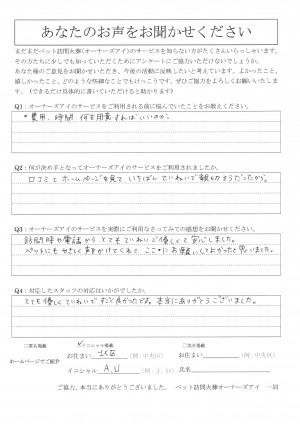 あなたのお声をお聞かせください
まだまだペット訪問火葬(オーナーズアイ)のサービスを知らない方がたくさんいらっしゃいます。
その方たちに少しでも知っていただくためにアンケートにご協力いただけないでしょうか。
あなた様のご意見をお聞かせいただき、今後の活動に反映したいと考えています。よかったこと、
嬉しかったこと、どのような些細なことでもけっこうです。ぜひご協力をよろしくお願いいたします。
(できるだけ具体的に書いていただけると助かります)
Q1:オーナーズアイのサービスをご利用される前に悩んでいたことをお教えください。
*費用、時間 何を用意すればいいのか。
Q2:何が決め手となってオーナーズアイのサービスをご利用されましたか。
口コミとホームページを見ていちばんていねいで親切そうだったから。
Q3:オーナーズアイのサービスを実際にご利用なさってみての感想をお聞かせください。
訪問時や電話からとてもていねいで優しくて安心しました。
ペットにもやさしく声がけてくれて ここにお願いしてよかったと思いました。
Q4:対応したスタッフの対応はいかがでしたか。
とても優しくていねいですごく良かったです。本当にありがとうございました。
□匿名掲載 イニシャル掲載 □実名掲載
ホームページでご紹介 お住まい 北区 (例:中央区) お住まい (例:中央区)
イニシャル A.U (例:J.H) 氏名
ご協力、本当にありがとうございました。 ペット訪問火葬オーナーズアイ 一同